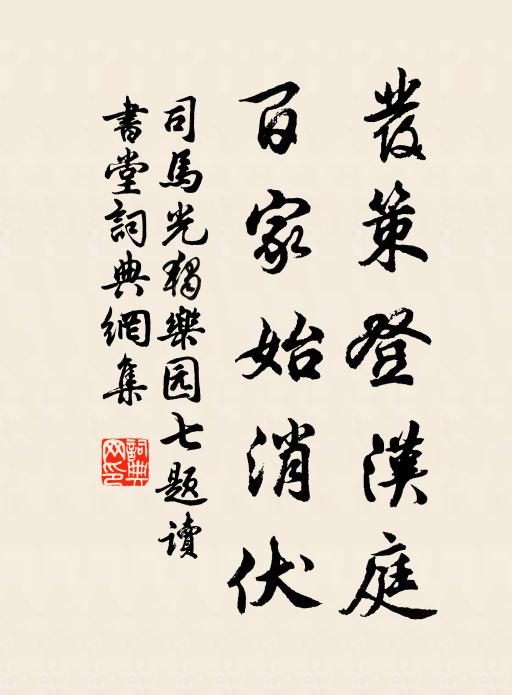 發策登漢庭
百家始消伏
司馬光獨樂园七題讀
書堂詞典網集
詞典
网印